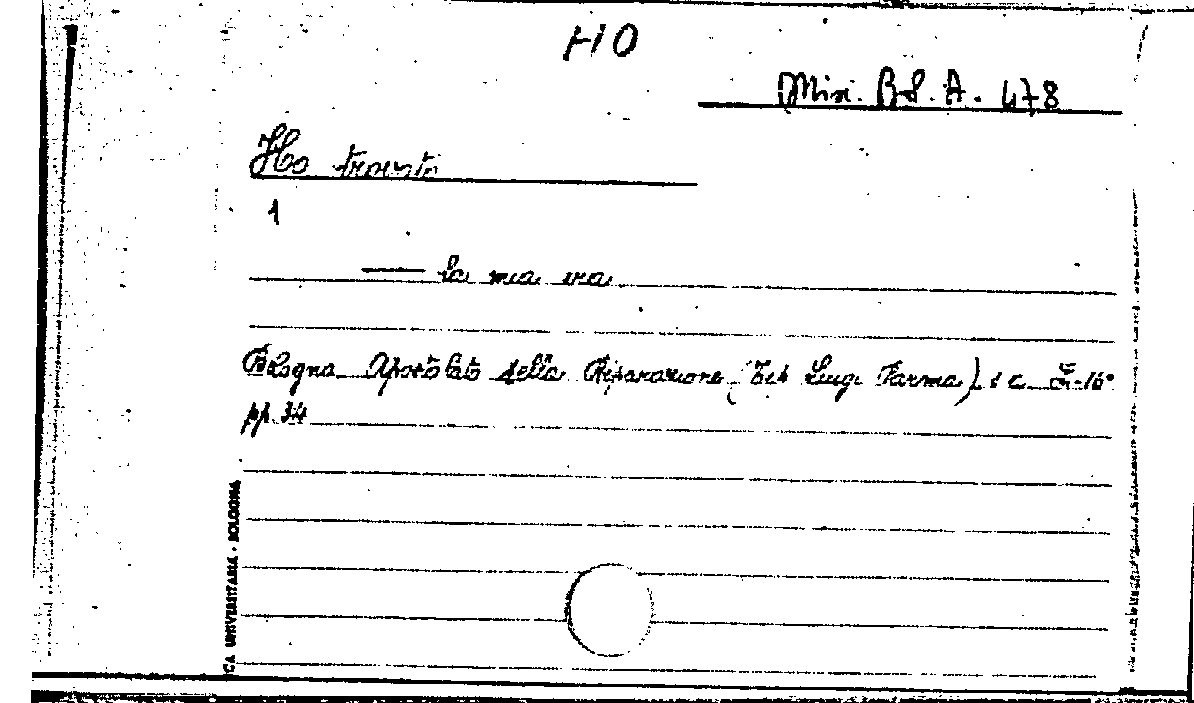 HO
Misc. B.S. A. 478
Ho trovato
1
—— la mia via
Bologna Apostolato della Riparazione (Tip Luigi Parma) s.a. In-16°
pp. 34
CA UNIVERSITARIA - BOLOGNA